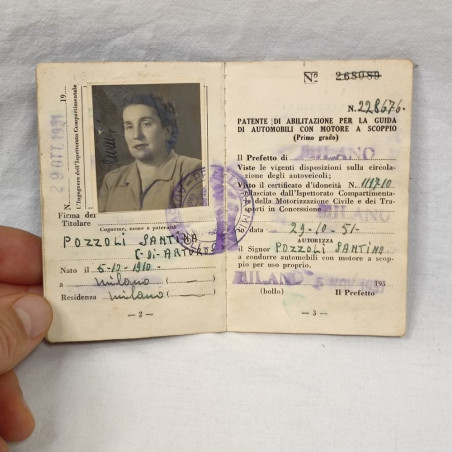 29 OTT. 1951
19...
N.
L'Ingegnere dell'Ispettorato Compartimentale
Firma del
Titolare
Cognome, nome e paternità
POZZOLI SANTINA
Nato il 5-12-1910-
a Milano (
Residenza Milano (
— 2 —
Nº 268089
N. 228676.
PATENTE DI ABILITAZIONE PER LA GUIDA
DI AUTOMOBILI CON MOTORE A SCOPPIO
(Primo grado)
Il Prefetto di MILANO
Viste le vigenti disposizioni sulla circola-
zione degli autoveicoli;
Visto il certificato d'idoneità N. 111710
rilasciato dall'Ispettorato Compartimenta-
le della Motorizzazione Civile e dei Tra-
sporti in Concessione di MILANO
in data 29-10-51-
AUTORIZZA
il Signor POZZOLI SANTINA
a condurre automobili con motore a scop-
pio per uso proprio.
MILANO 195
(bollo) Il Prefetto
— 3 —